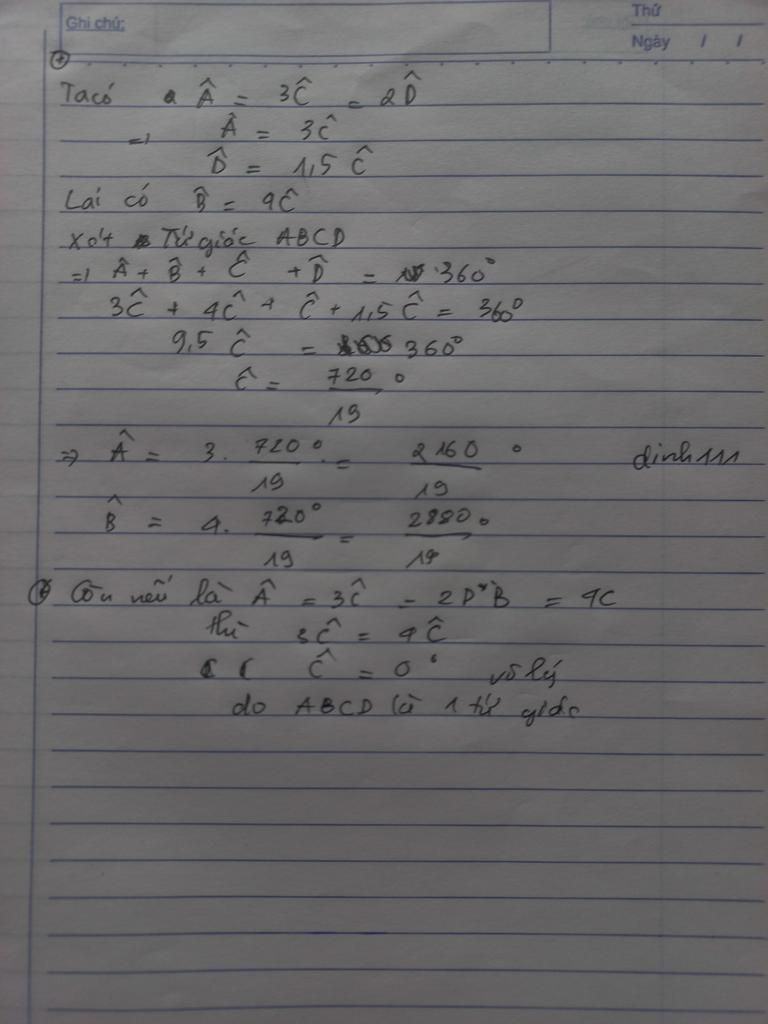 Ghi chú:
Thứ
Ngày / /
Ta có Â = 3Ĉ = 2D̂
=> Â = 3Ĉ
D̂ = 1,5 Ĉ
Lại có B̂ = 4Ĉ
Xét Tứ giác ABCD
=> Â + B̂ + Ĉ + D̂ = 360°
3Ĉ + 4Ĉ + Ĉ + 1,5 Ĉ = 360°
9,5 Ĉ = 360°
Ĉ = 720/19 °
=> Â = 3. 720°/19 = 2160/19 ° dinh111
B̂ = 4. 720°/19 = 2880/19 °
Còn nếu là Â = 3Ĉ = 2D B = 4C
thì 3Ĉ = 4Ĉ
Ĉ = 0° vô lý
do ABCD là 1 tứ giác